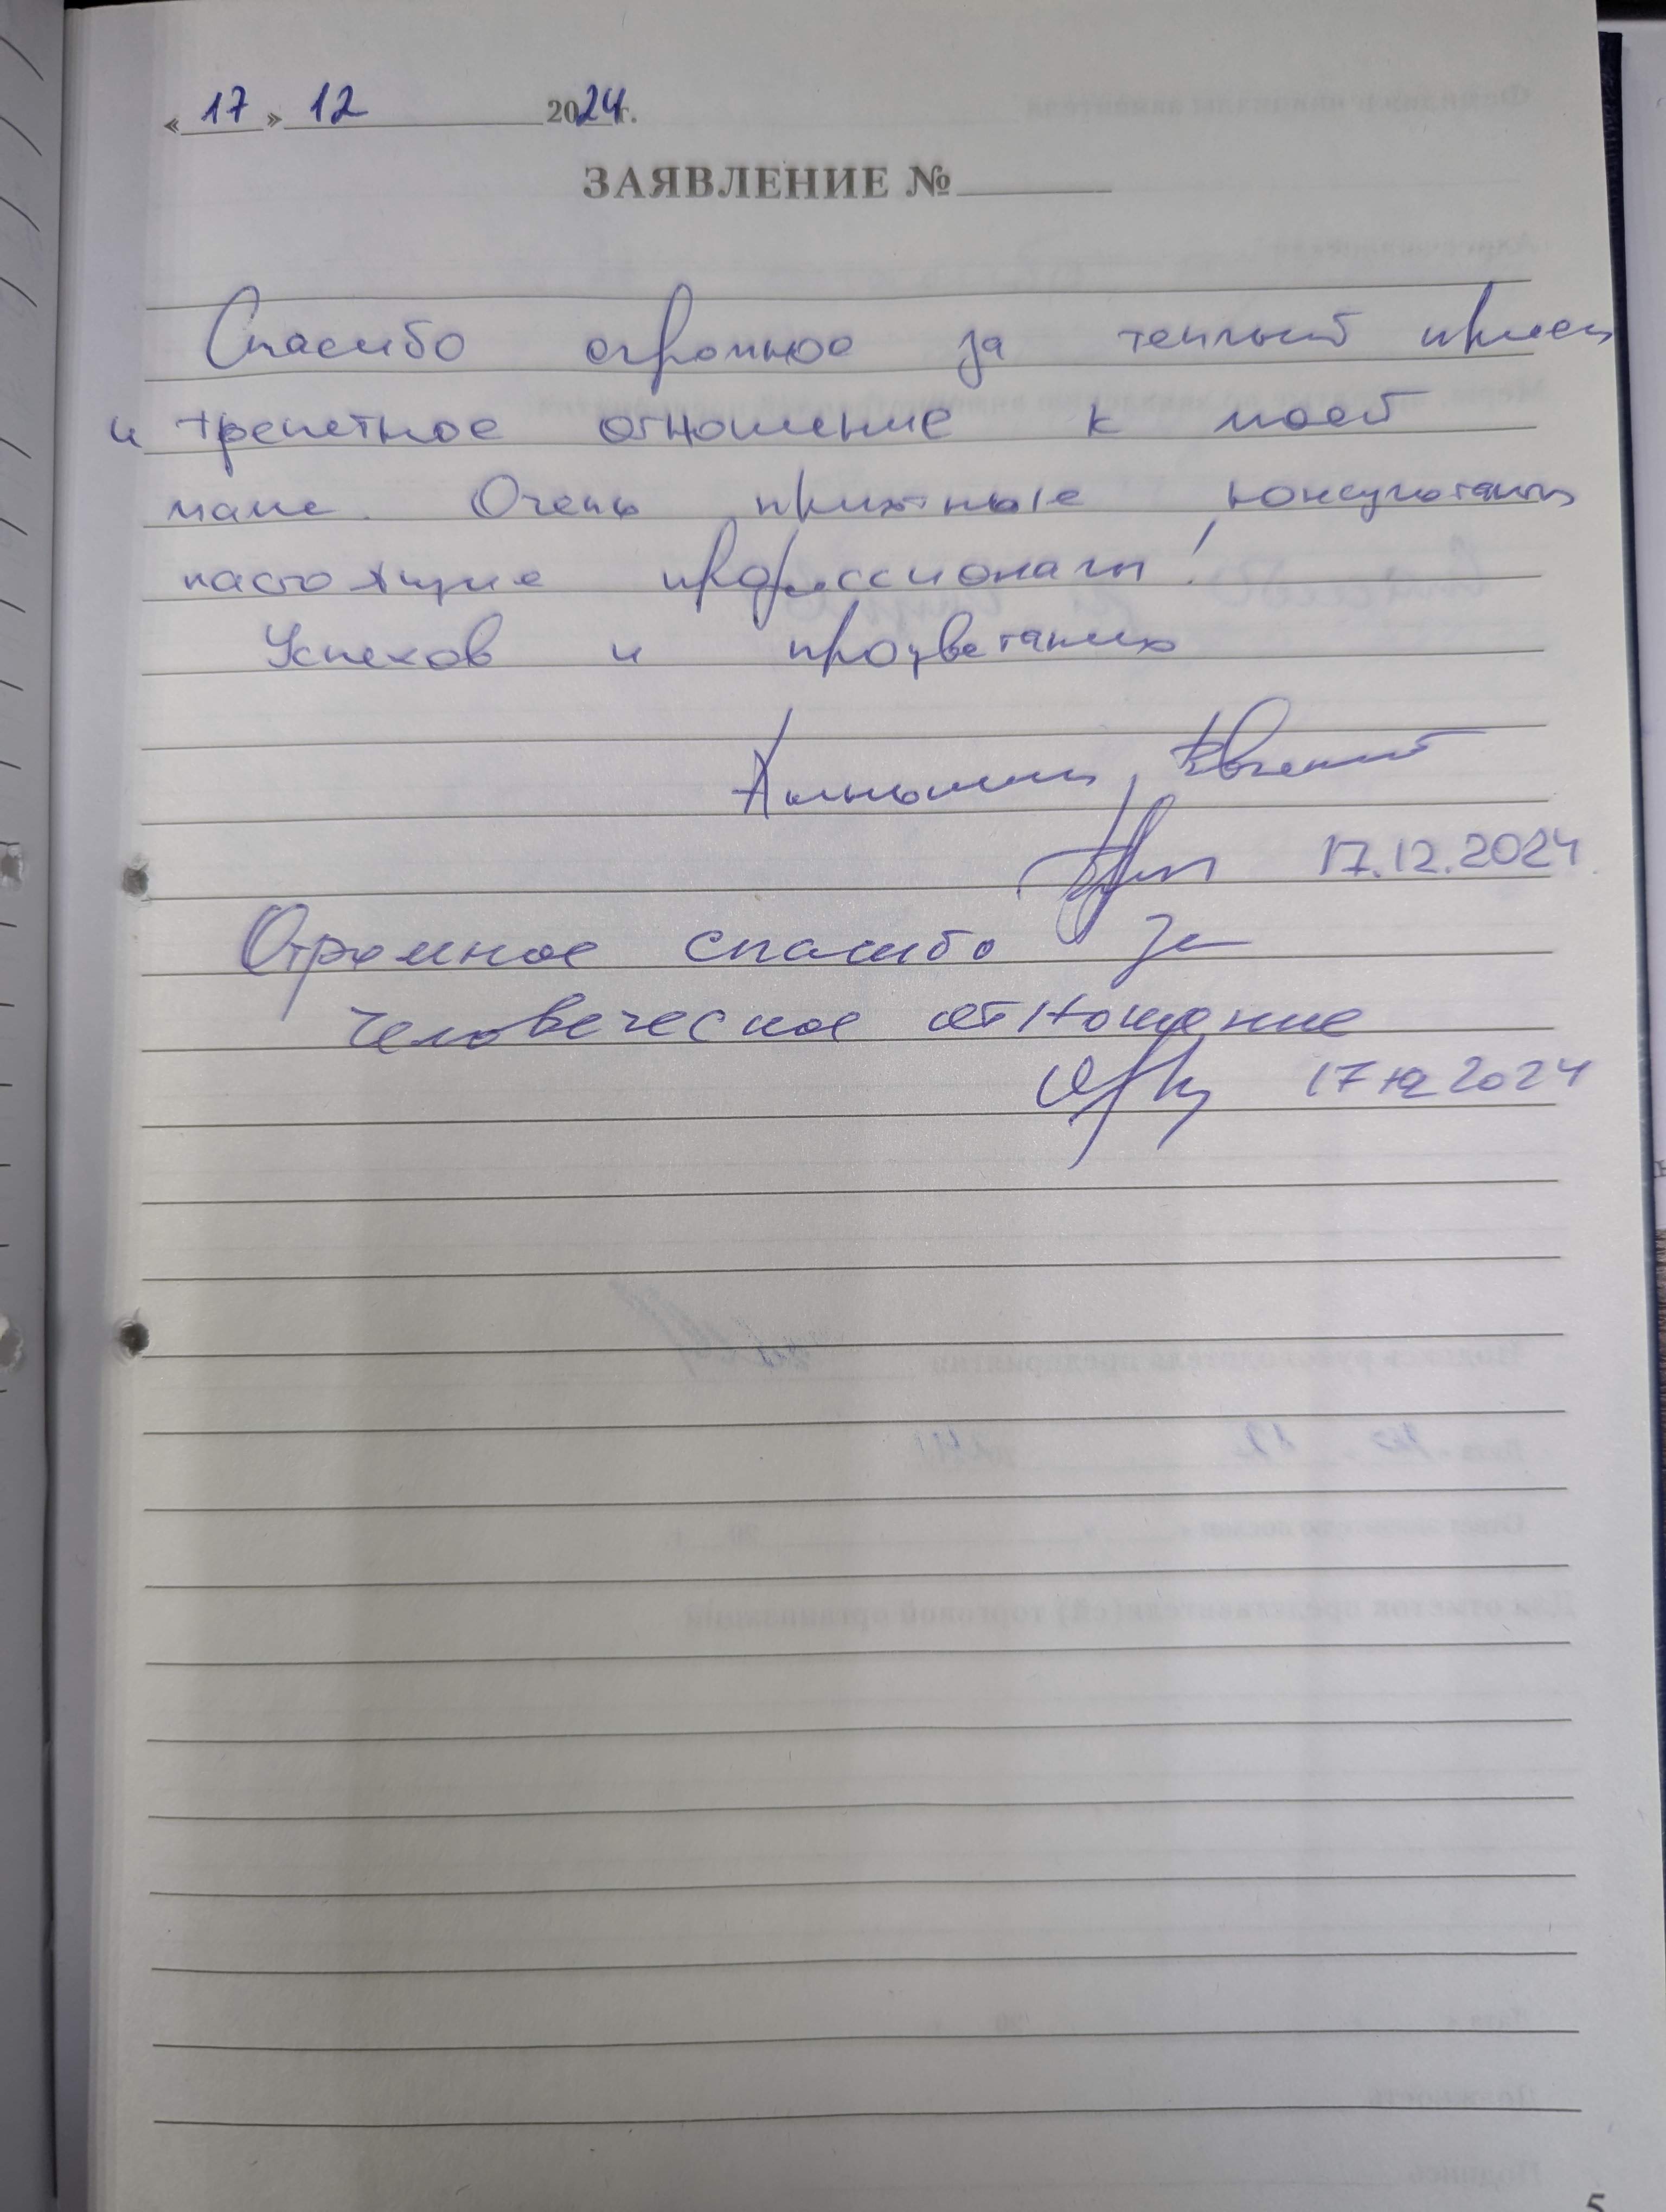 « 17 » 12 2024г.
ЗАЯВЛЕНИЕ №
Спасибо огромное за теплый прием
и трепетное отношение к моей
маме. Очень приятные консультанты
настоящие профессионалы!
Успехов и процветания
Евгений
17.12.2024
Огромное спасибо за
человеческое отношение
17 12 2024
5